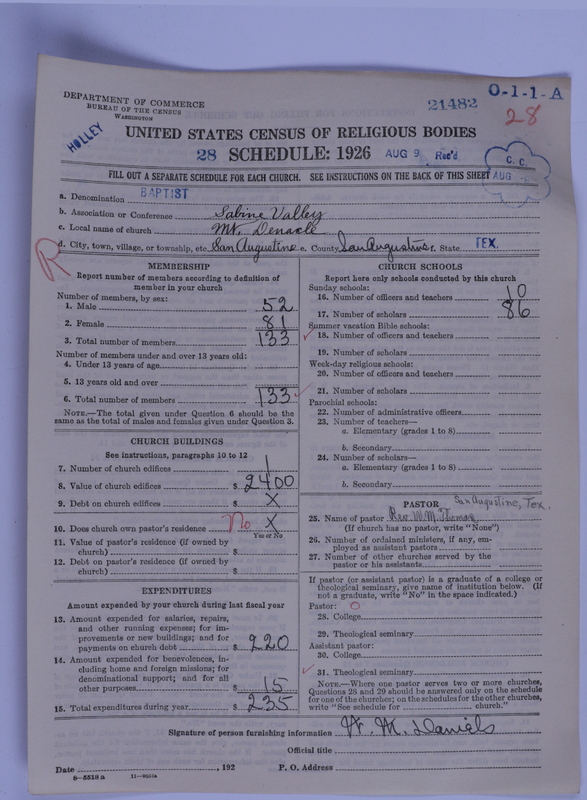 DEPARTMENT OF COMMERCE
BUREAU OF THE CENSUS
WASHINGTON
HOLLEY
21482
O-1-1-A
28
UNITED STATES CENSUS OF RELIGIOUS BODIES
28 SCHEDULE: 1926 AUG 9 Rec'd
C. C.
AUG
FILL OUT A SEPARATE SCHEDULE FOR EACH CHURCH. SEE INSTRUCTIONS ON THE BACK OF THIS SHEET
a. Denomination BAPTIST
b. Association or Conference Sabine Valley
c. Local name of church Mt. Denacle
d. City, town, village, or township, etc. San Augustine e. County San Augustine f. State TEX.
R
MEMBERSHIP
Report number of members according to definition of
member in your church
Number of members, by sex:
1. Male 52
2. Female 81
3. Total number of members 133
Number of members under and over 13 years old:
4. Under 13 years of age
5. 13 years old and over
6. Total number of members 133
NOTE.—The total given under Question 6 should be the
same as the total of males and females given under Question 3.
CHURCH BUILDINGS
See instructions, paragraphs 10 to 12
7. Number of church edifices 1
8. Value of church edifices $ 2400
9. Debt on church edifices $ X
10. Does church own pastor's residence No X
Yes or No
11. Value of pastor's residence (if owned by
church) $
12. Debt on pastor's residence (if owned by
church) $
EXPENDITURES
Amount expended by your church during last fiscal year
13. Amount expended for salaries, repairs,
and other running expenses; for im-
provements or new buildings; and for
payments on church debt $ 220
14. Amount expended for benevolences, in-
cluding home and foreign missions; for
denominational support; and for all
other purposes $ 15
15. Total expenditures during year $ 235
CHURCH SCHOOLS
Report here only schools conducted by this church
Sunday schools:
16. Number of officers and teachers 10
17. Number of scholars 86
Summer vacation Bible schools:
18. Number of officers and teachers
19. Number of scholars
Week-day religious schools:
20. Number of officers and teachers
21. Number of scholars
Parochial schools:
22. Number of administrative officers
23. Number of teachers—
a. Elementary (grades 1 to 8)
b. Secondary
24. Number of scholars—
a. Elementary (grades 1 to 8)
b. Secondary
PASTOR San Augustine, Tex.
25. Name of pastor Rev. W. M.
(If church has no pastor, write "None")
26. Number of ordained ministers, if any, em-
ployed as assistant pastors
27. Number of other churches served by the
pastor or his assistants
If pastor (or assistant pastor) is a graduate of a college or
theological seminary, give name of institution below. (If
not a graduate, write "No" in the space indicated.)
Pastor: O
28. College
29. Theological seminary
Assistant pastor:
30. College
31. Theological seminary
NOTE.—Where one pastor serves two or more churches,
Questions 28 and 29 should be answered only on the schedule
for one of the churches; on the schedules for the other churches,
write "See schedule for church."
Signature of person furnishing information W. M. Daniels
Official title
Date , 192 P. O. Address
8-5518a